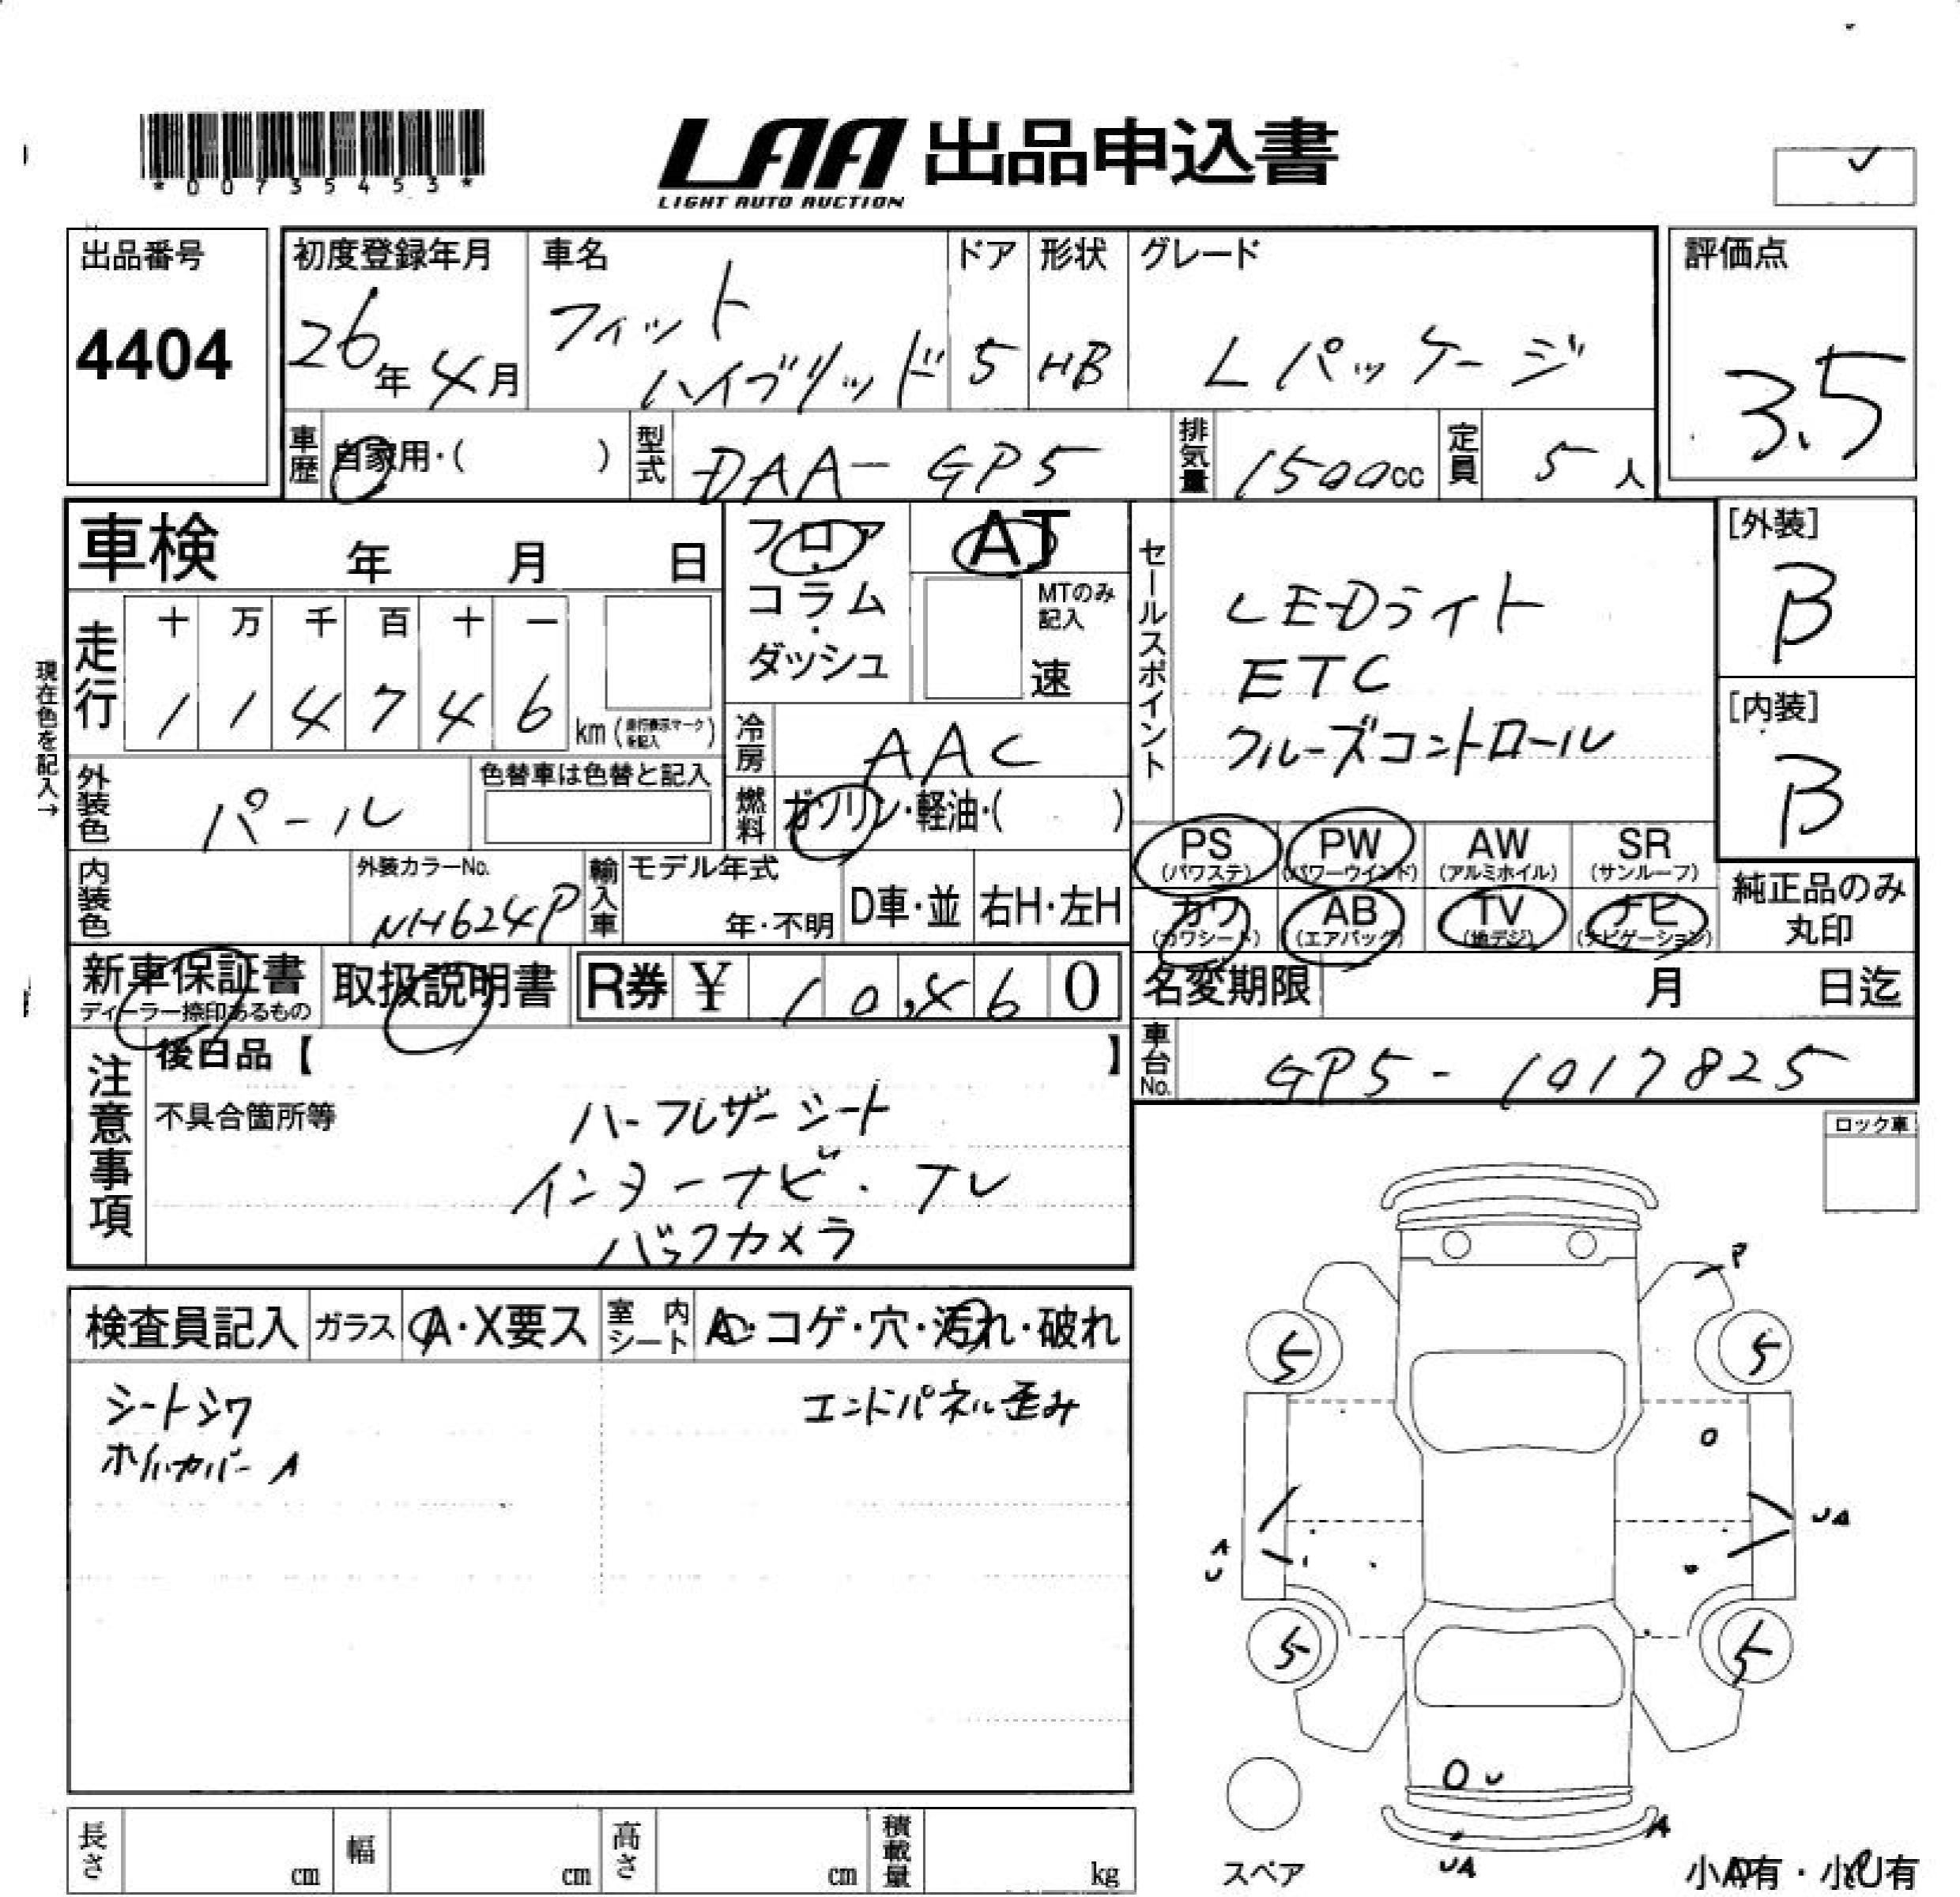 *00735453*
LAA 出品申込書
LIGHT AUTO AUCTION
出品番号
4404
初度登録年月
26年 4月
車名
フィット
ハイブリッド
ドア
5
形状
HB
グレード
Lパッケージ
評価点
3.5
車歴
自家用・( )
型式
DAA-GP5
排気量
1500cc
定員
5人
車検 年 月 日
現在色を記入→
走行
十 万 千 百 十 一
1 1 4 7 4 6 km (走行表示マークを記入)
フロア
・
コラム
・
ダッシュ
AT
MTのみ
記入
速
冷房
AAC
燃料
ガソリン・軽油・( )
セールスポイント
LEDライト
ETC
クルーズコントロール
[外装]
B
[内装]
B
外装色
パール
色替車は色替と記入
内装色
外装カラーNo.
NH624P
輸入車
モデル年式
年・不明
D車・並
右H・左H
PS
(パワステ)
PW
(パワーウインド)
AW
(アルミホイル)
SR
(サンルーフ)
カワ
(カワシート)
AB
(エアバッグ)
TV
(地デジ)
ナビ
(ナビゲーション)
純正品のみ
丸印
新車保証書
ディーラー捺印あるもの
取扱説明書
R券 ¥ 10,460
名変期限 月 日迄
車台No.
GP5-1017825
注意事項
後日品【 】
不具合箇所等
ハーフレザーシート
インターナビ・TV
バックカメラ
ロック車
検査員記入
ガラス
A・X要ス
室内
シート
A・コゲ・穴・汚れ・破れ
シートシワ
エンドパネル歪み
ホイルカバーA
P
5
5
UA
A
U
5
5
U
A
UA
スペア
小A有・小U有
長さ cm
幅 cm
高さ cm
積載量 kg